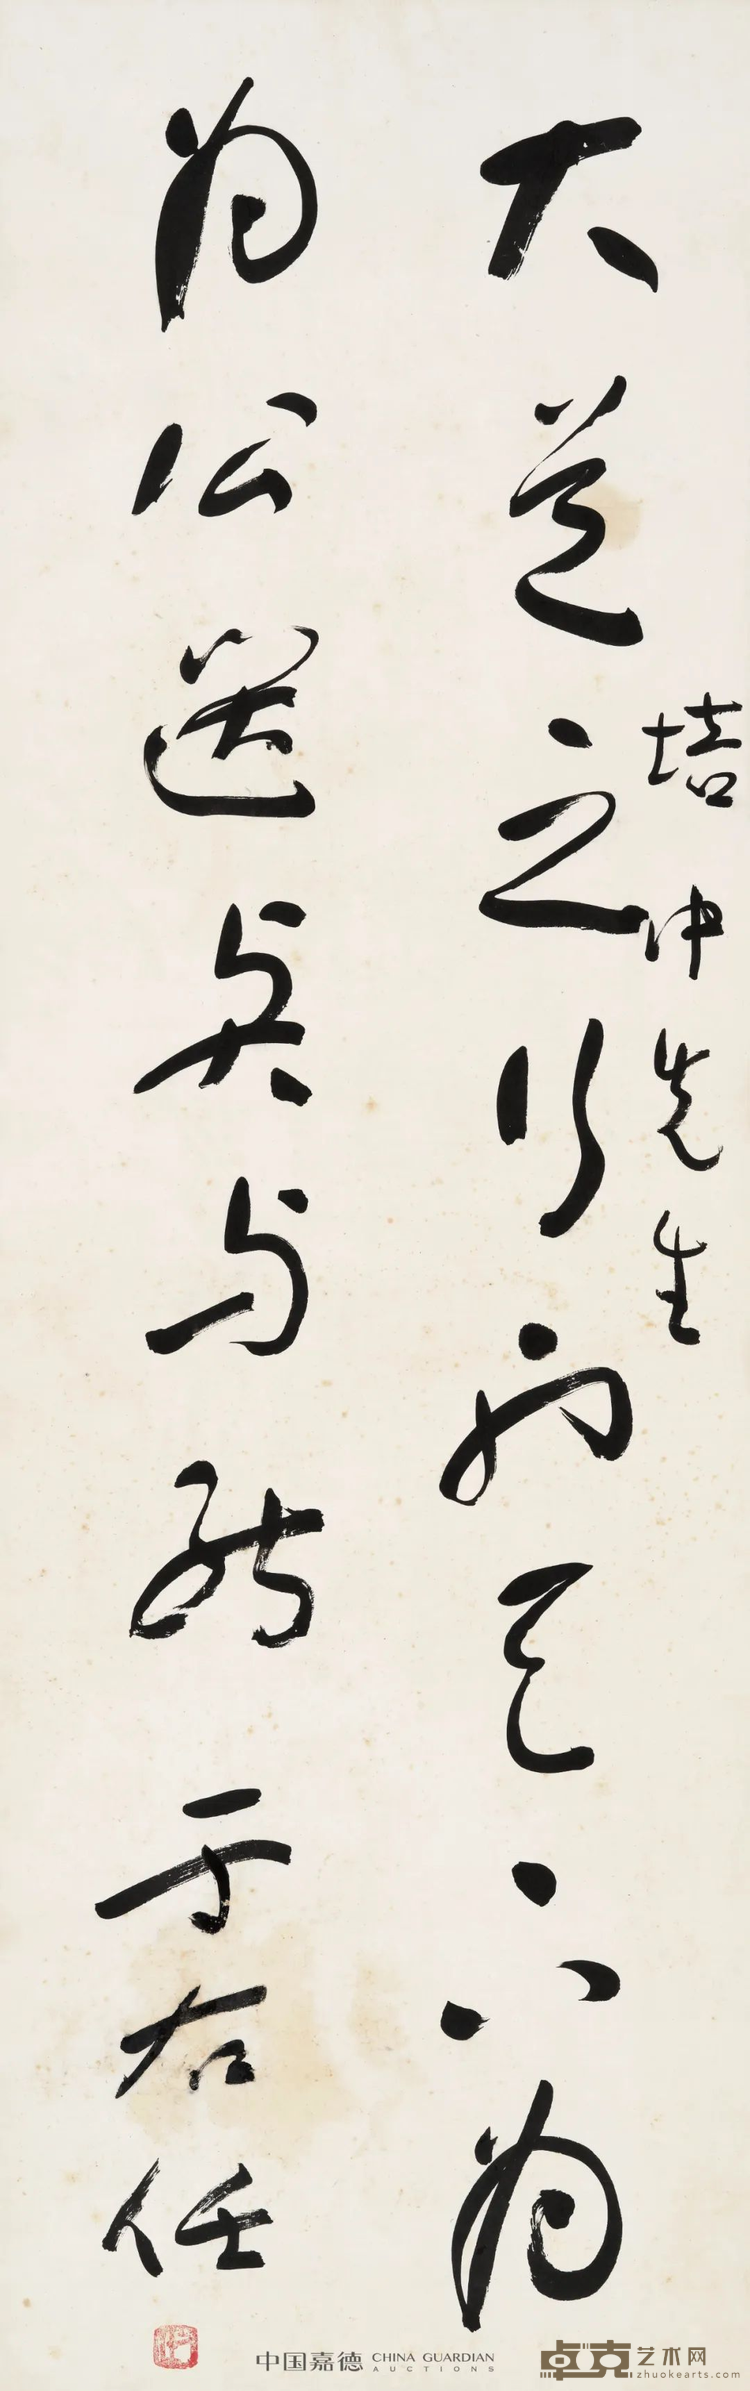 培仲先生
大道之行也天下為
為公選賢與能
于右任
中国嘉德 CHINA GUARDIAN
AUCTIONS
卓克艺术网
zhuokearts.com